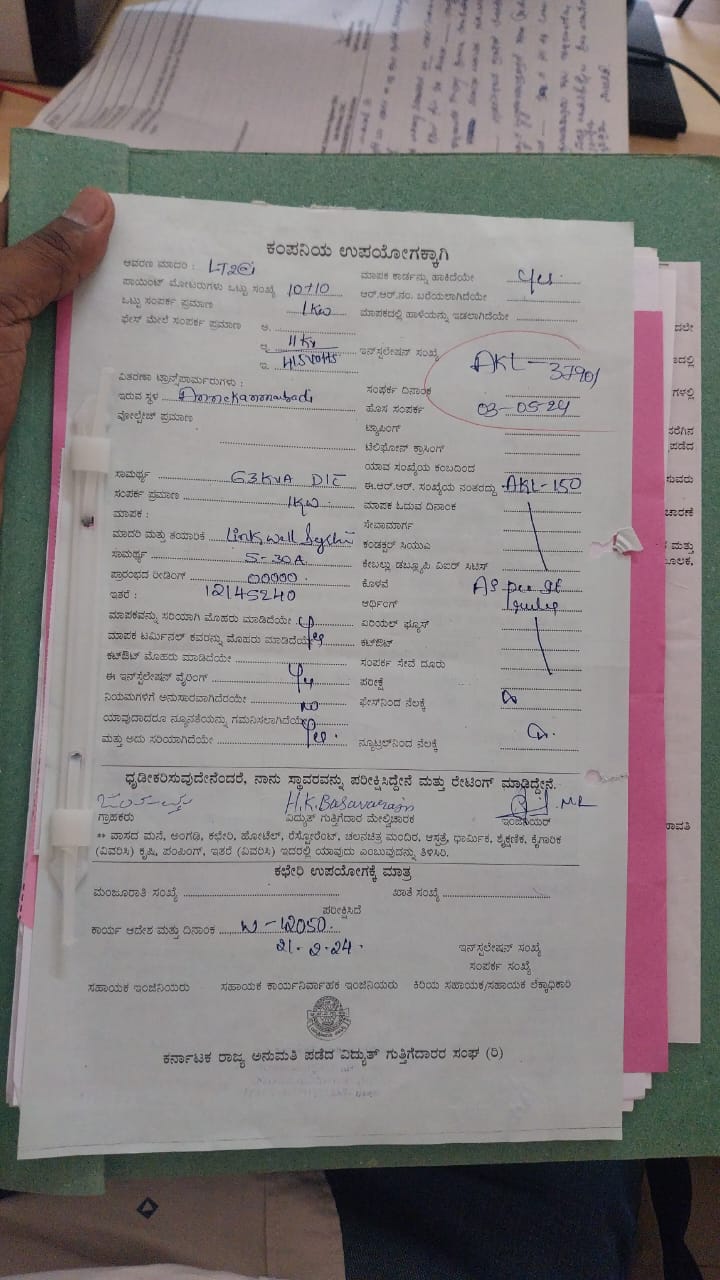 ಕಂಪನಿಯ ಉಪಯೋಗಕ್ಕಾಗಿ
ಆವರಣ ಮಾದರಿ : LT2
ಪಾಯಿಂಟ್ ಮೋಟರುಗಳು ಒಟ್ಟು ಸಂಖ್ಯೆ 10+10
ಒಟ್ಟು ಸಂಪರ್ಕ ಪ್ರಮಾಣ 1KW
ಫೇಸ್ ಮೇಲೆ ಸಂಪರ್ಕ ಪ್ರಮಾಣ ಅ.
11KV
ಇ. 415Volts
ಮಾಪಕ ಕಾರ್ಡನ್ನು ಹಾಕಿದೆಯೇ yes.
ಆರ್.ಆರ್.ನಂ. ಬರೆಯಲಾಗಿದೆಯೇ
ಮಾಪಕದಲ್ಲಿ ಹಾಳೆಯನ್ನು ಇಡಲಾಗಿದೆಯೇ
ಇನ್‌ಸ್ಟಲೇಷನ್ ಸಂಖ್ಯೆ AKL-37901
ವಿತರಣಾ ಟ್ರಾನ್ಸ್‌ಫಾರ್ಮರುಗಳು :
ಇರುವ ಸ್ಥಳ
ವೋಲ್ಟೇಜ್ ಪ್ರಮಾಣ
ಸಂಪರ್ಕ ದಿನಾಂಕ
ಹೊಸ ಸಂಪರ್ಕ 03-05-24
ಟ್ಯಾಪಿಂಗ್
ಟೆಲಿಫೋನ್ ಕ್ರಾಸಿಂಗ್
ಯಾವ ಸಂಖ್ಯೆಯ ಕಂಬದಿಂದ
ಸಾಮರ್ಥ್ಯ 63KVA DTC
ಸಂಪರ್ಕ ಪ್ರಮಾಣ 1KW
ಮಾಪಕ :
ಮಾದರಿ ಮತ್ತು ತಯಾರಿಕೆ Linkwell
ಸಾಮರ್ಥ್ಯ 5-30A
ಪ್ರಾರಂಭದ ರೀಡಿಂಗ್ 00000.
ಇತರೆ : 12145240
ಈ.ಆರ್.ಆರ್. ಸಂಖ್ಯೆಯ ನಂತರದ್ದು AKL-150
ಮಾಪಕ ಓದುವ ದಿನಾಂಕ
ಸೇವಾಮಾರ್ಗ
ಕಂಡಕ್ಟರ್ ಸಿಯುಎ
ಕೇಬಲ್ಲು ಡಬ್ಲ್ಯೂಪಿ ವಿಐರ್ ಸಿಟಿಸ್
ಕೊಳವೆ As per
ಆರ್ಥಿಂಗ್ rules
ಮಾಪಕವನ್ನು ಸರಿಯಾಗಿ ಮೊಹರು ಮಾಡಿದೆಯೇ
ಮಾಪಕ ಟರ್ಮಿನಲ್ ಕವರನ್ನು ಮೊಹರು ಮಾಡಿದೆಯೇ
ಕಟ್‌ಔಟ್ ಮೊಹರು ಮಾಡಿದೆಯೇ
ಈ ಇನ್‌ಸ್ಟಲೇಷನ್ ವೈರಿಂಗ್ yes
ನಿಯಮಗಳಿಗೆ ಅನುಸಾರವಾಗಿದೆರೆಯೇ no
ಯಾವುದಾದರೂ ನ್ಯೂನತೆಯನ್ನು ಗಮನಿಸಲಾಗಿದೆಯೇ
ಮತ್ತು ಅದು ಸರಿಯಾಗಿದೆಯೇ yes.
ಏರಿಯಲ್ ಫ್ಯೂಸ್
ಕಟ್‌ಔಟ್
ಸಂಪರ್ಕ ಸೇವೆ ದೂರು
ಪರೀಕ್ಷೆ
ಫೇಸ್‌ನಿಂದ ನೆಲಕ್ಕೆ
ನ್ಯೂಟ್ರಲ್‌ನಿಂದ ನೆಲಕ್ಕೆ
ಧೃಡೀಕರಿಸುವುದೇನೆಂದರೆ, ನಾನು ಸ್ಥಾವರವನ್ನು ಪರೀಕ್ಷಿಸಿದ್ದೇನೆ ಮತ್ತು ರೇಟಿಂಗ್ ಮಾಡಿದ್ದೇನೆ.
H.K.Basavaraju
ಗ್ರಾಹಕರು ವಿದ್ಯುತ್ ಗುತ್ತಿಗೆದಾರ ಮೇಲ್ವಿಚಾರಕ ಇಂಜಿನಿಯರ್
** ವಾಸದ ಮನೆ, ಅಂಗಡಿ, ಕಛೇರಿ, ಹೋಟೆಲ್, ರೆಸ್ಟೋರೆಂಟ್, ಚಲನಚಿತ್ರ ಮಂದಿರ, ಆಸ್ಪತ್ರೆ, ಧಾರ್ಮಿಕ, ಶೈಕ್ಷಣಿಕ, ಕೈಗಾರಿಕ
(ವಿವರಿಸಿ) ಕೃಷಿ, ಪಂಪಿಂಗ್, ಇತರೆ (ವಿವರಿಸಿ) ಇದರಲ್ಲಿ ಯಾವುದು ಎಂಬುವುದನ್ನು ತಿಳಿಸಿರಿ.
ಕಛೇರಿ ಉಪಯೋಗಕ್ಕೆ ಮಾತ್ರ
ಮಂಜೂರಾತಿ ಸಂಖ್ಯೆ ಖಾತೆ ಸಂಖ್ಯೆ
ಪರೀಕ್ಷಿಸಿದೆ
ಕಾರ್ಯ ಆದೇಶ ಮತ್ತು ದಿನಾಂಕ W-42050.
21.2.24.
ಇನ್‌ಸ್ಟಲೇಷನ್ ಸಂಖ್ಯೆ
ಸಂಪರ್ಕ ಸಂಖ್ಯೆ
ಸಹಾಯಕ ಇಂಜಿನಿಯರು ಸಹಾಯಕ ಕಾರ್ಯನಿರ್ವಾಹಕ ಇಂಜಿನಿಯರು ಕಿರಿಯ ಸಹಾಯಕ/ಸಹಾಯಕ ಲೆಕ್ಕಾಧಿಕಾರಿ
ಕರ್ನಾಟಕ ರಾಜ್ಯ ಅನುಮತಿ ಪಡೆದ ವಿದ್ಯುತ್ ಗುತ್ತಿಗೆದಾರರ ಸಂಘ (ರಿ)